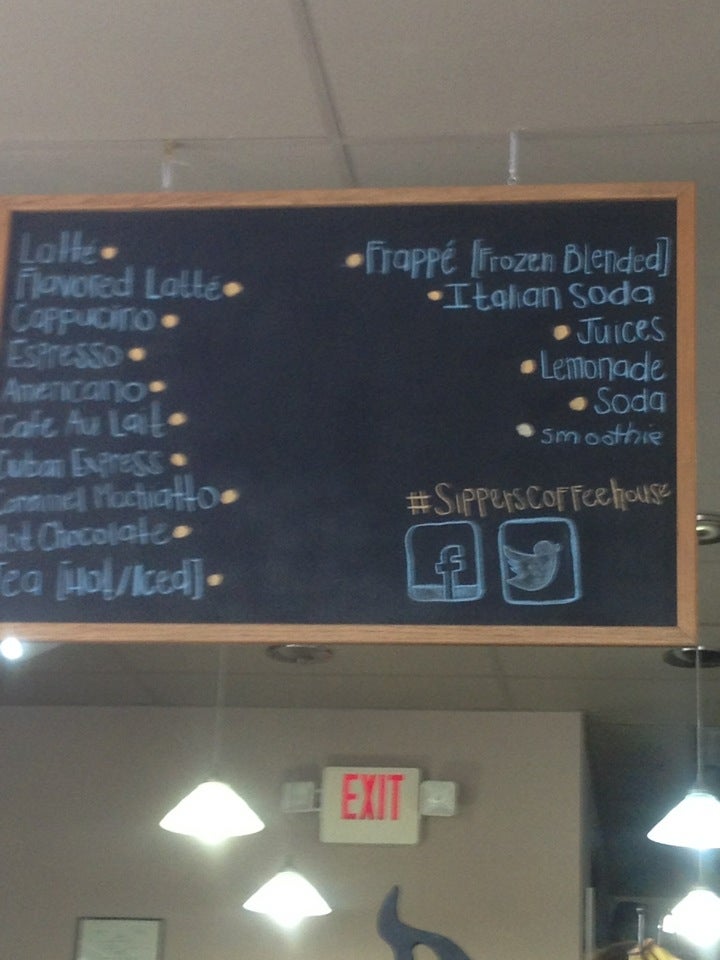 Latté
Flavored Latté
Cappucino
Espresso
Americano
Cafe Au Lait
Cuban Express
Caramel Machiatto
Hot Chocolate
Tea [Hot/Iced]
Frappé [Frozen Blended]
Italian Soda
Juices
Lemonade
Soda
Smoothie
#SippersCoffeehouse
f
EXIT